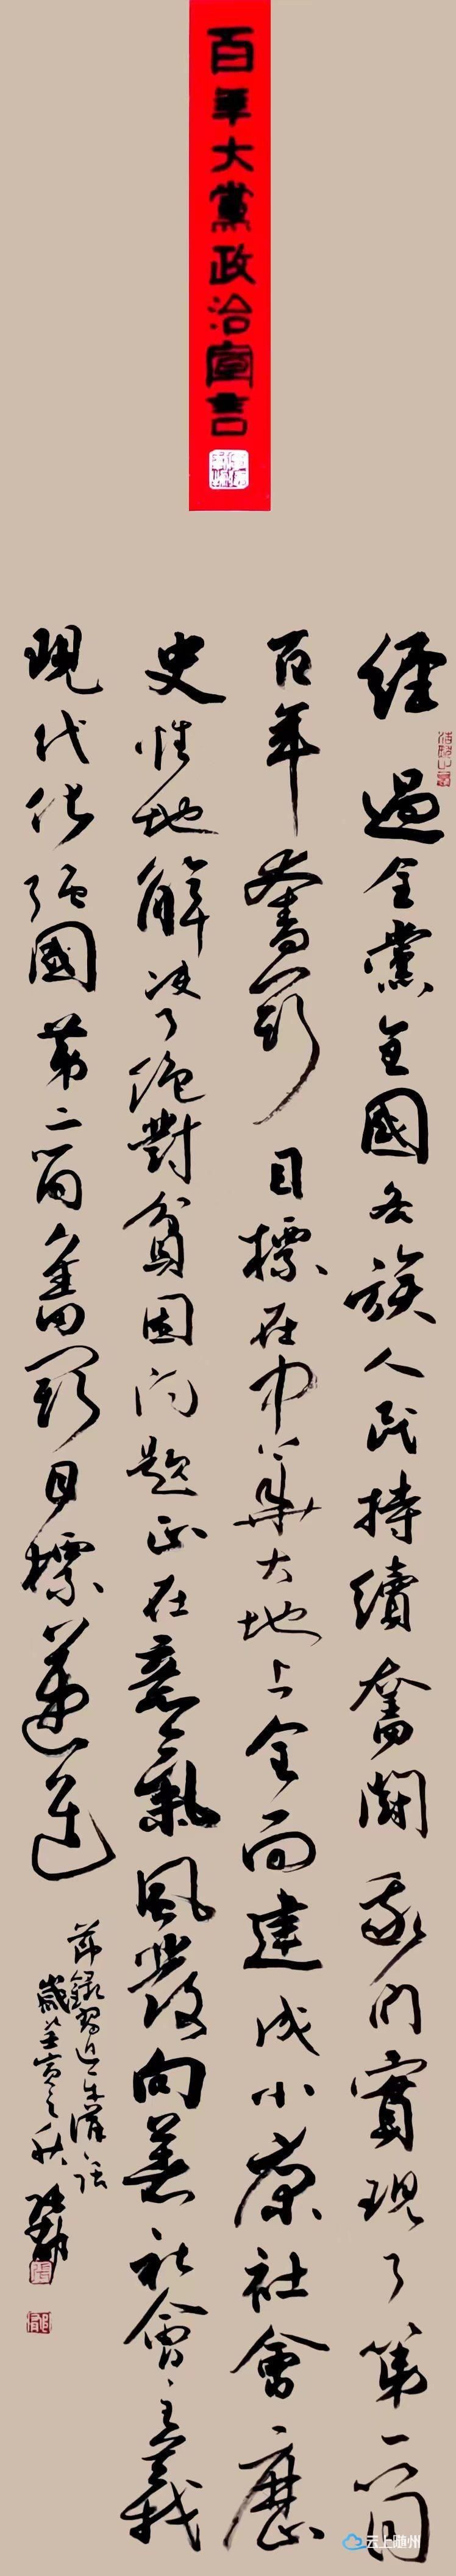 百年大黨政治宣言
經過全黨全國各族人民持續奮鬭我們實現了第一箇
百年奮鬥目標在中華大地上全面建成小康社會歷
史性地解决了絕對貧困问題正在意氣風發向着社會主義
現代化强國第二箇奮鬥目標邁進
節錄習近平講話
歲壬寅之秋
云上随州